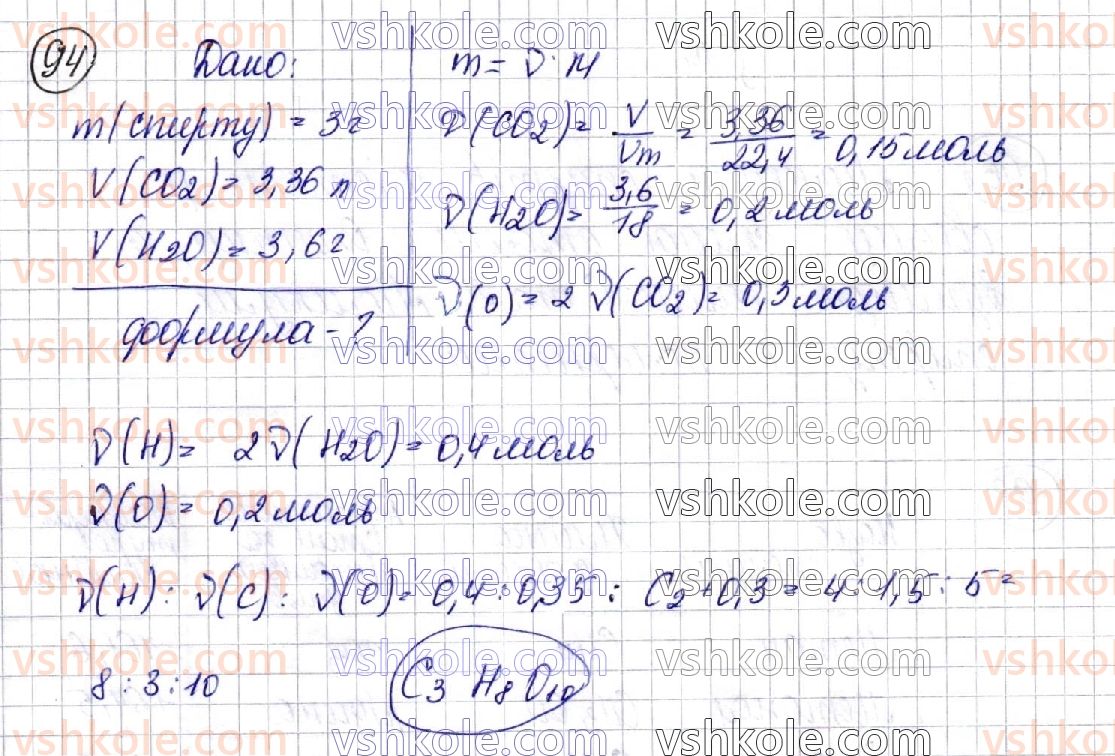 94
Дано:
m(спирту) = 3г
V(CO2) = 3,36 л
V(H2O) = 3,6г
формула - ?
m = ν · M
ν(CO2) = V/Vm = 3,36/22,4 = 0,15 моль
ν(H2O) = 3,6/18 = 0,2 моль
ν(O) = 2 ν(CO2) = 0,3 моль
ν(H) = 2ν(H2O) = 0,4 моль
ν(O) = 0,2 моль
ν(H) : ν(C) : ν(O) = 0,4 : 0,35 : C2 + 0,3 = 4 : 1,5 : 5 =
8 : 3 : 10
C3 H8 O10
vshkole.com